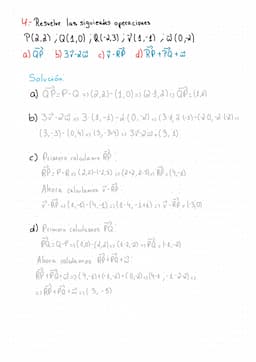 4.- Resuelve las siguientes operaciones
P(2,2), Q(1,0), R(-2,3), v⃗(1,-1), w⃗(0,-2)
a) QP⃗ b) 3v⃗-2w⃗ c) v⃗-RP⃗ d) RP⃗+PQ⃗+w⃗
Solución:
a) QP⃗=P-Q => (2,2)-(1,0) => (2-1,2) => QP⃗=(1,2)
b) 3v⃗-2w⃗ => 3·(1,-1)-2·(0,-2) =>
(3,-3)-(0,4) => 3v⃗-2w⃗=(3,1)
c) Primero calculamos RP⃗
RP⃗=P-R => (2,2)-(-2,3) => (2+2,2-3) => RP⃗=(4,-1)
Ahora calculamos v⃗-RP⃗
v⃗-RP⃗ => (1,-1)-(4,-1) => (1-4,-1+1) => v⃗-RP⃗=(-3,0)
d) Primero calculamos PQ⃗
PQ⃗=Q-P => (1,0)-(2,2) => (1-2,-2) => PQ⃗=(-1,-2)
Ahora calculamos RP⃗+PQ⃗+w⃗:
RP⃗+PQ⃗+w⃗ => (4,-1)+(-1,-2)+(0,-2) => (4-1,-1-2-2) =>
=> RP⃗+PQ⃗+w⃗ => (3,-5)